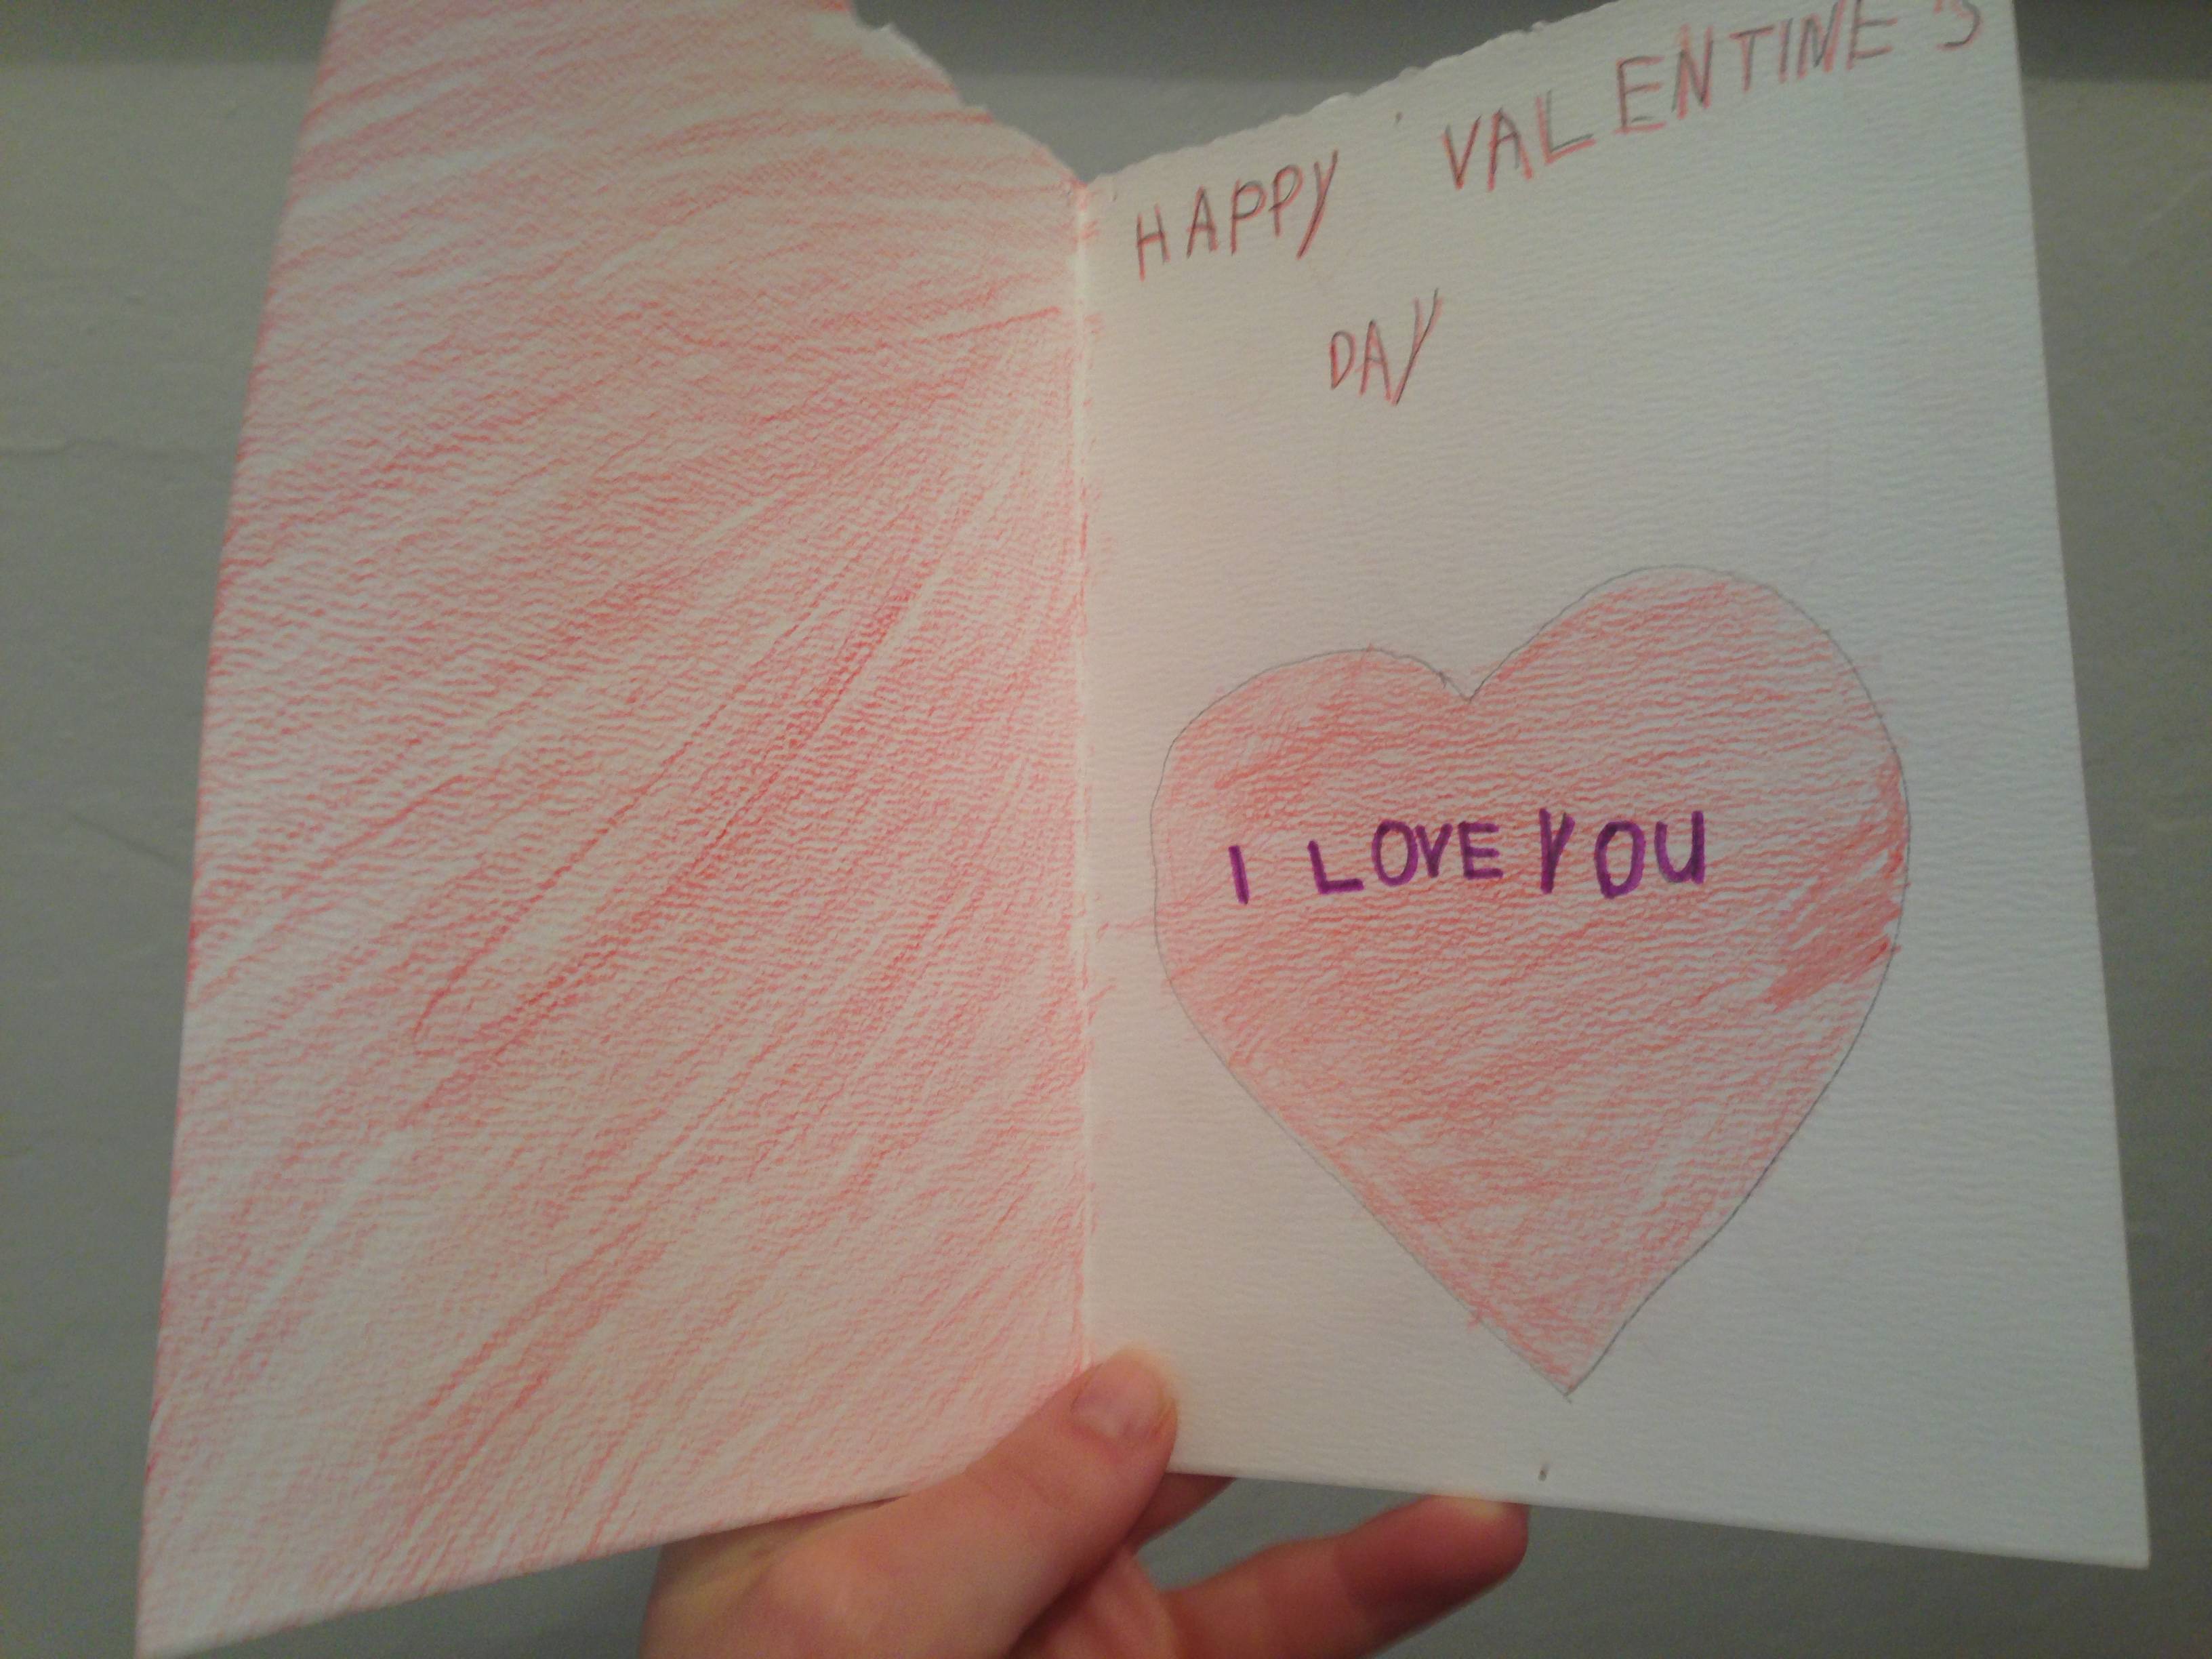 HAPPY VALENTINE'S
DAY
I LOVE YOU